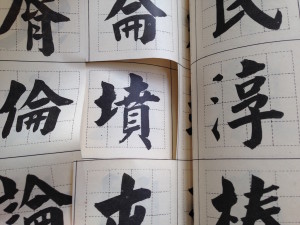 脊 侖 民
倫 墳 淳
論 屯 椿